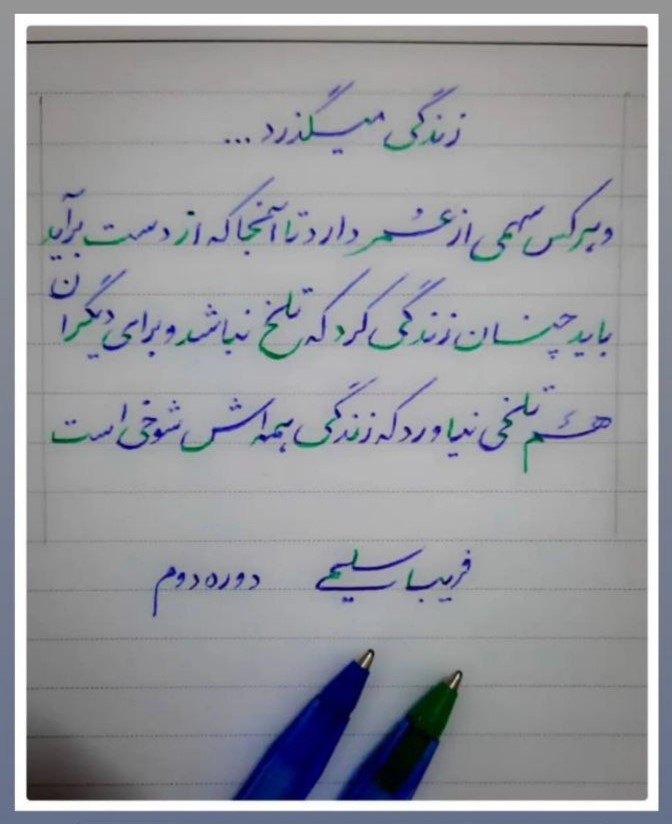 زندگی میگذرد...
و هر کس سهمی از عمر دارد تا آنجا که از دست برآید
باید چنان زندگی کرد که تلخ نباشد و برای دیگران
هم تلخی نیاورد که زندگی همه اش شوخی است
فریبا سلیمی دوره دوم